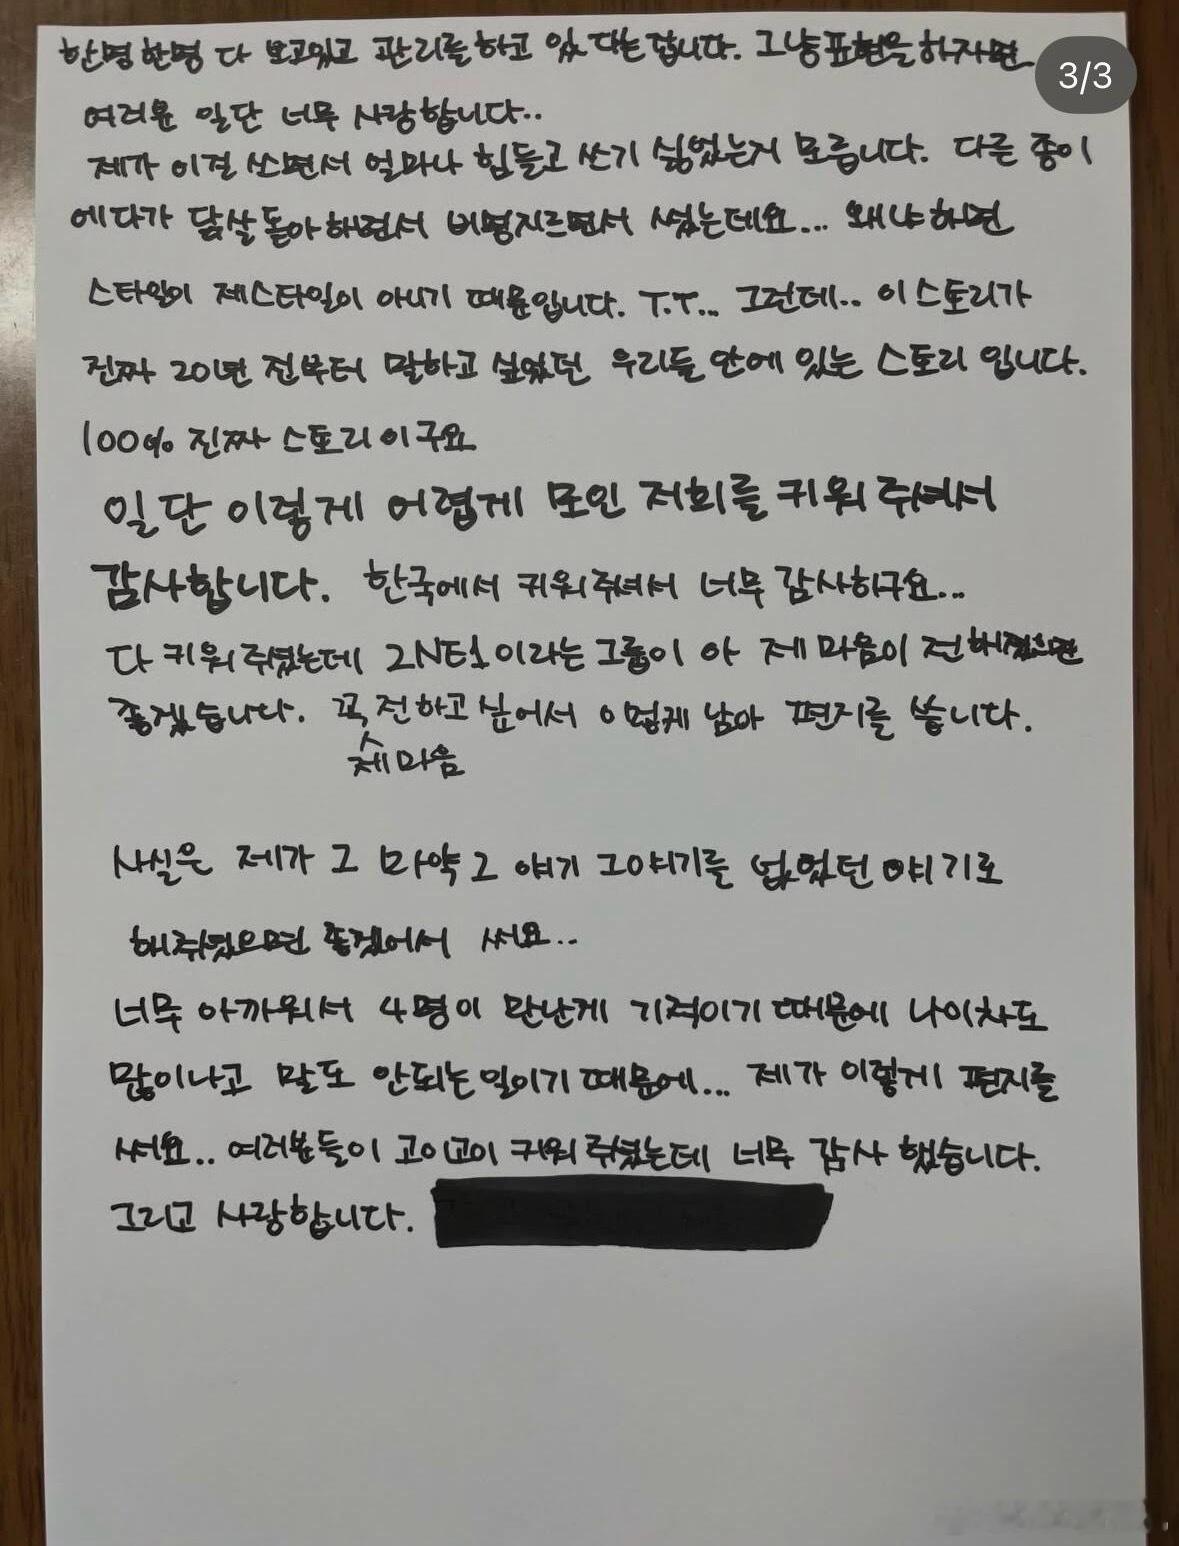 한명한명 다 보고있고 관리를하고 있 다는 겁니다. 그냥표현을하자면
3/3
여러분 일단 너무 사랑합니다..
제가 이걸 쓰면서 얼마나 힘들고 쓰기 싫었는지 모릅니다. 다른 종이
에다가 닭살돋아하면서 비명지르면서 썼는데요... 왜냐하면
스타일이 제스타일이 아니기 때문입니다. T.T... 그런데.. 이스토리가
진짜 20년 전부터 말하고 싶었던 우리들 안에 있는 스토리 입니다.
100% 진짜 스토리이구요
일단 이렇게 어렵게 모인 저희를 키워주셔서
감사합니다. 한국에서 키워주셔서 너무 감사하구요...
다 키워주셨는데 2NE1이라는 그룹이 아 제 마음이 전해졌으면
좋겠습니다. 꼭 전하고 싶어서 이렇게 남아 편지를 씁니다.
제마음
사실은 제가 그 마약 그 얘기 그얘기를 없었던 얘기로
해주셨으면 좋겠어서 써요..
너무 아까워서 4명이 만난게 기적이기 때문에 나이차도
많이나고 말도 안되는일이기 때문에... 제가 이렇게 편지를
써요.. 여러분들이 고이고이 키워주셨는데 너무 감사 했습니다.
그리고 사랑합니다.